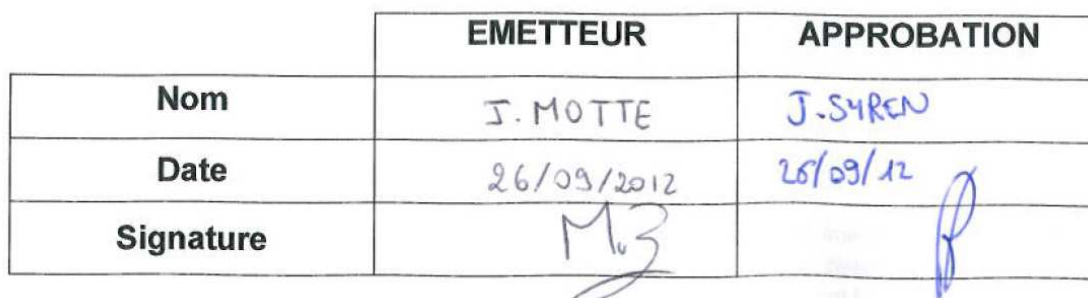 EMETTEUR APPROBATION
Nom J. MOTTE J. SYREN
Date 26/09/2012 26/09/12
Signature